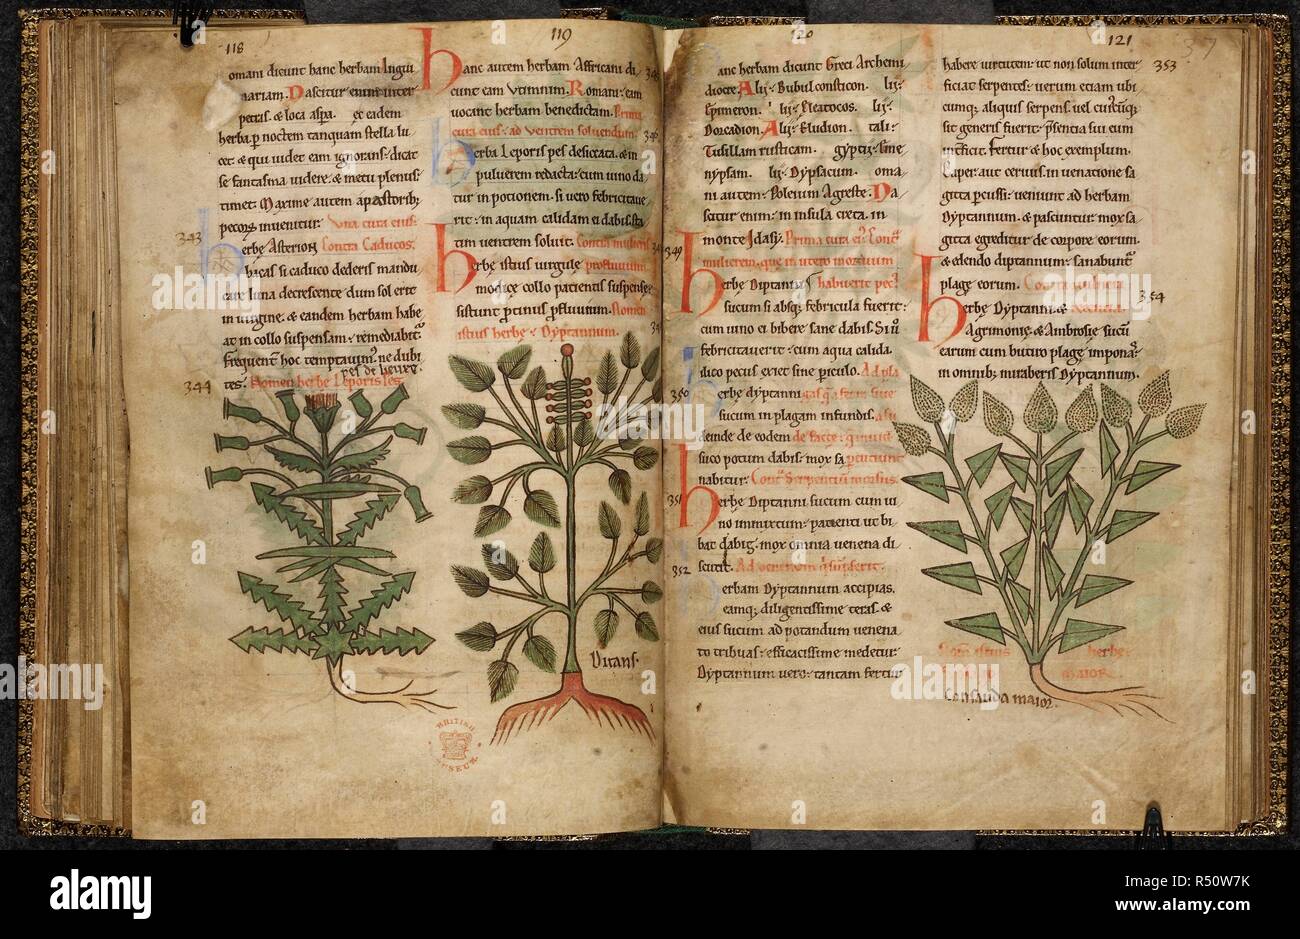 118
omani dicunt hanc herbam Ingui
nariam. Nascitur enim inter
petras. & loca aspa. ec eadem
herba p noctem tanquam stella lu
cet. & qui uidet eam ignorans. dicat
se fantasma uidere. & metu plenus
timet. Maxime autem a pastorib;
pecoris inuenitur. Una cura eius.
343
herbe Asterion Contra Caducos.
bacas si caduco dederis mandu
care luna decrescente dum sol erit
in uirgine. & eandem herbam habe
at in collo suspensam. remediabit
frequent hoc temptauim. ne dubi
pes de lieure
344
tes. Nomen herbe Leporis pes.
119
hanc autem herbam Affricani di
cunt eam Utminum. Romani. eam
uocant herbam benedictam. Prima
cura eius. ad Ventrem soluendum
herba Leporis pes desiccata. & in
puluerem redacta. cum uino da
tur in potionem. si uero febricitaue
rit. in aquam calidam ei dabis. sta
tim uentrem soluit. Contra mulieris
herbe istius uirgule profluuium.
modice collo patientis suspense
sistunt protinus profluuium. Nomen
istius herbe. Dyptannum.
Vitans.
BRITISH
MUSEUM
120
anc herbam dicunt Greci Archemi
diocre. Alij. Bubul consticon. lij.
Epimeron. lij. Eleatocos. lij.
Dorcadion. Alij. Eludion. tali.
Tusillam rusticam. gyptij. sine
nypsam. lij. Dypsacum. oma
ni autem. Poleium Agreste. Na
scitur enim. in insula creta. in
monte Idasy. Prima cura e. Cont
349
mulierem, que in utero mortuum
herbe Diptanni habuerit pec
sucum si absq; febricula fuerit.
cum uino ei bibere sane dabis. Si u
febricitauerit. cum aqua calida.
dico pecus exiet sine periculo. Ad pla
350
erbe dyptanni
sucum in plagam infundis.
deinde de eodem
suco potum dabis. mox sa
nabitur. Contra Serpentium morsus.
351
herbe Diptanni sucum cum ui
no immixtum. patienti ut bi
bat dabis. mox omnia uenena di
scutit.
352
herbam Dyptannum accipias.
eamq; diligentissime teras. &
eius sucum ad potandum uenena
to tribuas. efficacissime medetur.
Dyptannum uero. tantam fertur
121
37
habere uirtutem. ut non solum inter
353
ficiat serpentes. uerum etiam ubi
cumq; aliquis serpens, uel cuiusq;
sit generis fuerit. psentia sui eum
inficit. Fertur & hoc exemplum.
Caper, aut ceruus, in uenatione sa
gitta percussi. ueniunt ad herbam
Dyptannum. & pascuntur. mox sa
gitta egreditur de corpore eorum.
& edendo diptannum. sanabunt
plage eorum. Contra uulnera
354
herbe Dyptanni. &
Agrimonie, & Ambrosie sucum
earum cum butiro plage imponat.
in omnib; miraberis Dyptannum.
Nom istius herbe.
maior.
Consauda maior.
alamy
Image ID: R50W7K
www.alamy.com